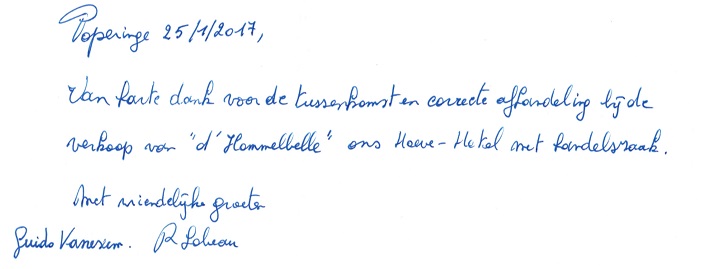 Poperinge 25/1/2017,
Van harte dank voor de tussenkomst en correcte afhandeling bij de
verkoop van "d'Hommelbelle" ons Hoeve-Hotel met handelszaak.
Met vriendelijke groeten
Guido Vanexem. R